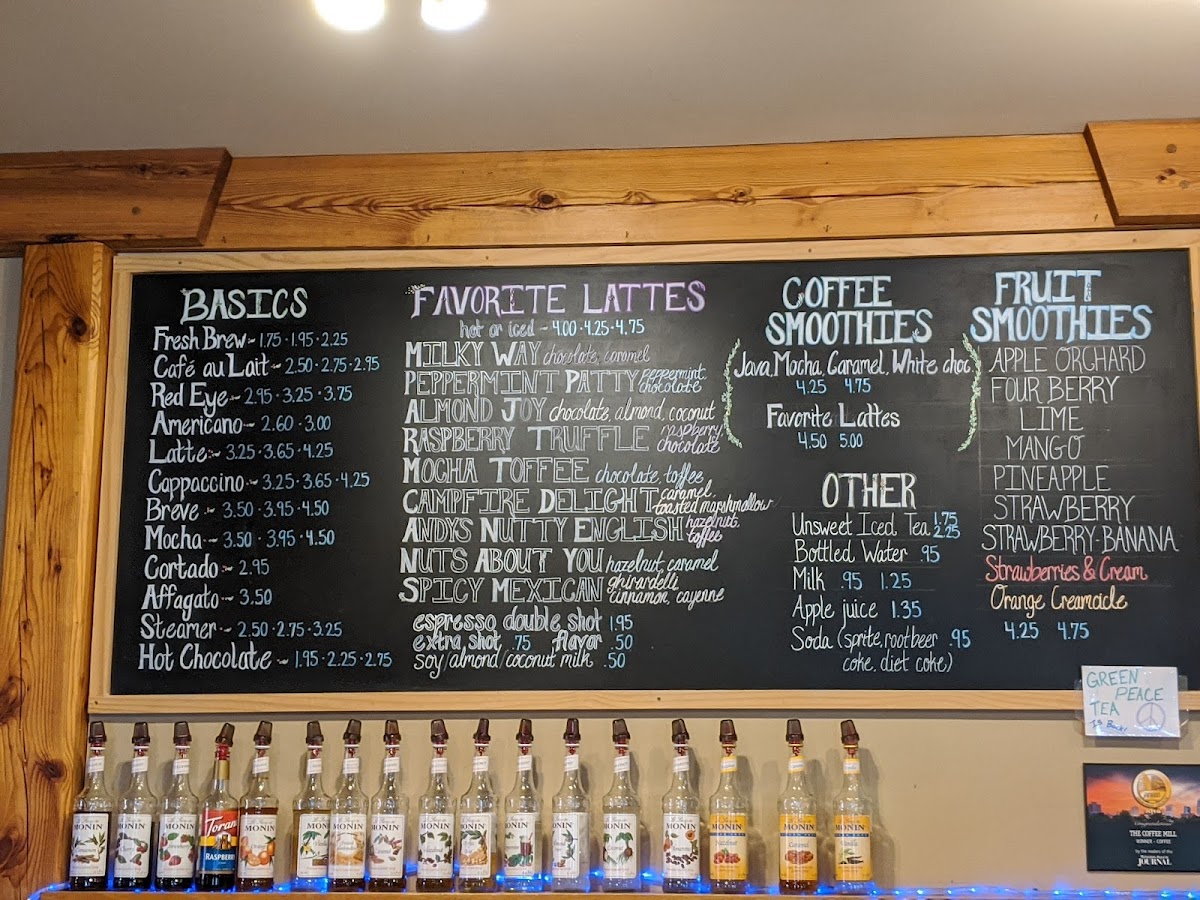 BASICS
Fresh Brew - 1.75 · 1.95 · 2.25
Café au Lait - 2.50 · 2.75 · 2.95
Red Eye - 2.95 · 3.25 · 3.75
Americano - 2.60 · 3.00
Latte - 3.25 · 3.65 · 4.25
Cappaccino - 3.25 · 3.65 · 4.25
Breve - 3.50 · 3.95 · 4.50
Mocha - 3.50 · 3.95 · 4.50
Cortado - 2.95
Affagato - 3.50
Steamer - 2.50 · 2.75 · 3.25
Hot Chocolate - 1.95 · 2.25 · 2.75
FAVORITE LATTES
hot or iced - 4.00 · 4.25 · 4.75
MILKY WAY chocolate, caramel
PEPPERMINT PATTY peppermint
chocolate
ALMOND JOY chocolate, almond, coconut
RASPBERRY TRUFFLE raspberry
chocolate
MOCHA TOFFEE chocolate, toffee
CAMPFIRE DELIGHT caramel,
toasted marshmallow
ANDYS NUTTY ENGLISH hazelnut,
toffee
NUTS ABOUT YOU hazelnut, caramel
SPICY MEXICAN ghirardelli,
cinnamon, cayenne
espresso double shot 1.95
extra shot .75 flavor .50
soy/almond/coconut milk .50
COFFEE
SMOOTHIES
Java, Mocha, Caramel, White choc
4.25 4.75
Favorite Lattes
4.50 5.00
OTHER
Unsweet Iced Tea 1.75
2.25
Bottled Water .95
Milk .95 1.25
Apple juice 1.35
Soda (sprite, rootbeer .95
coke, diet coke)
FRUIT
SMOOTHIES
APPLE ORCHARD
FOUR BERRY
LIME
MANGO
PINEAPPLE
STRAWBERRY
STRAWBERRY-BANANA
Strawberries & Cream
Orange Creamcicle
4.25 4.75
GREEN
PEACE
TEA
Is Back!
MONIN
MONIN
MONIN
Torani
RASPBERRY
MONIN
MONIN
MONIN
MONIN
MONIN
MONIN
MONIN
MONIN
MONIN
MONIN
MONIN
Hazelnut
MONIN
Caramel
MONIN
Vanilla
Congratulations
THE COFFEE MILL
WINNER - COFFEE
by the readers of the
JOURNAL